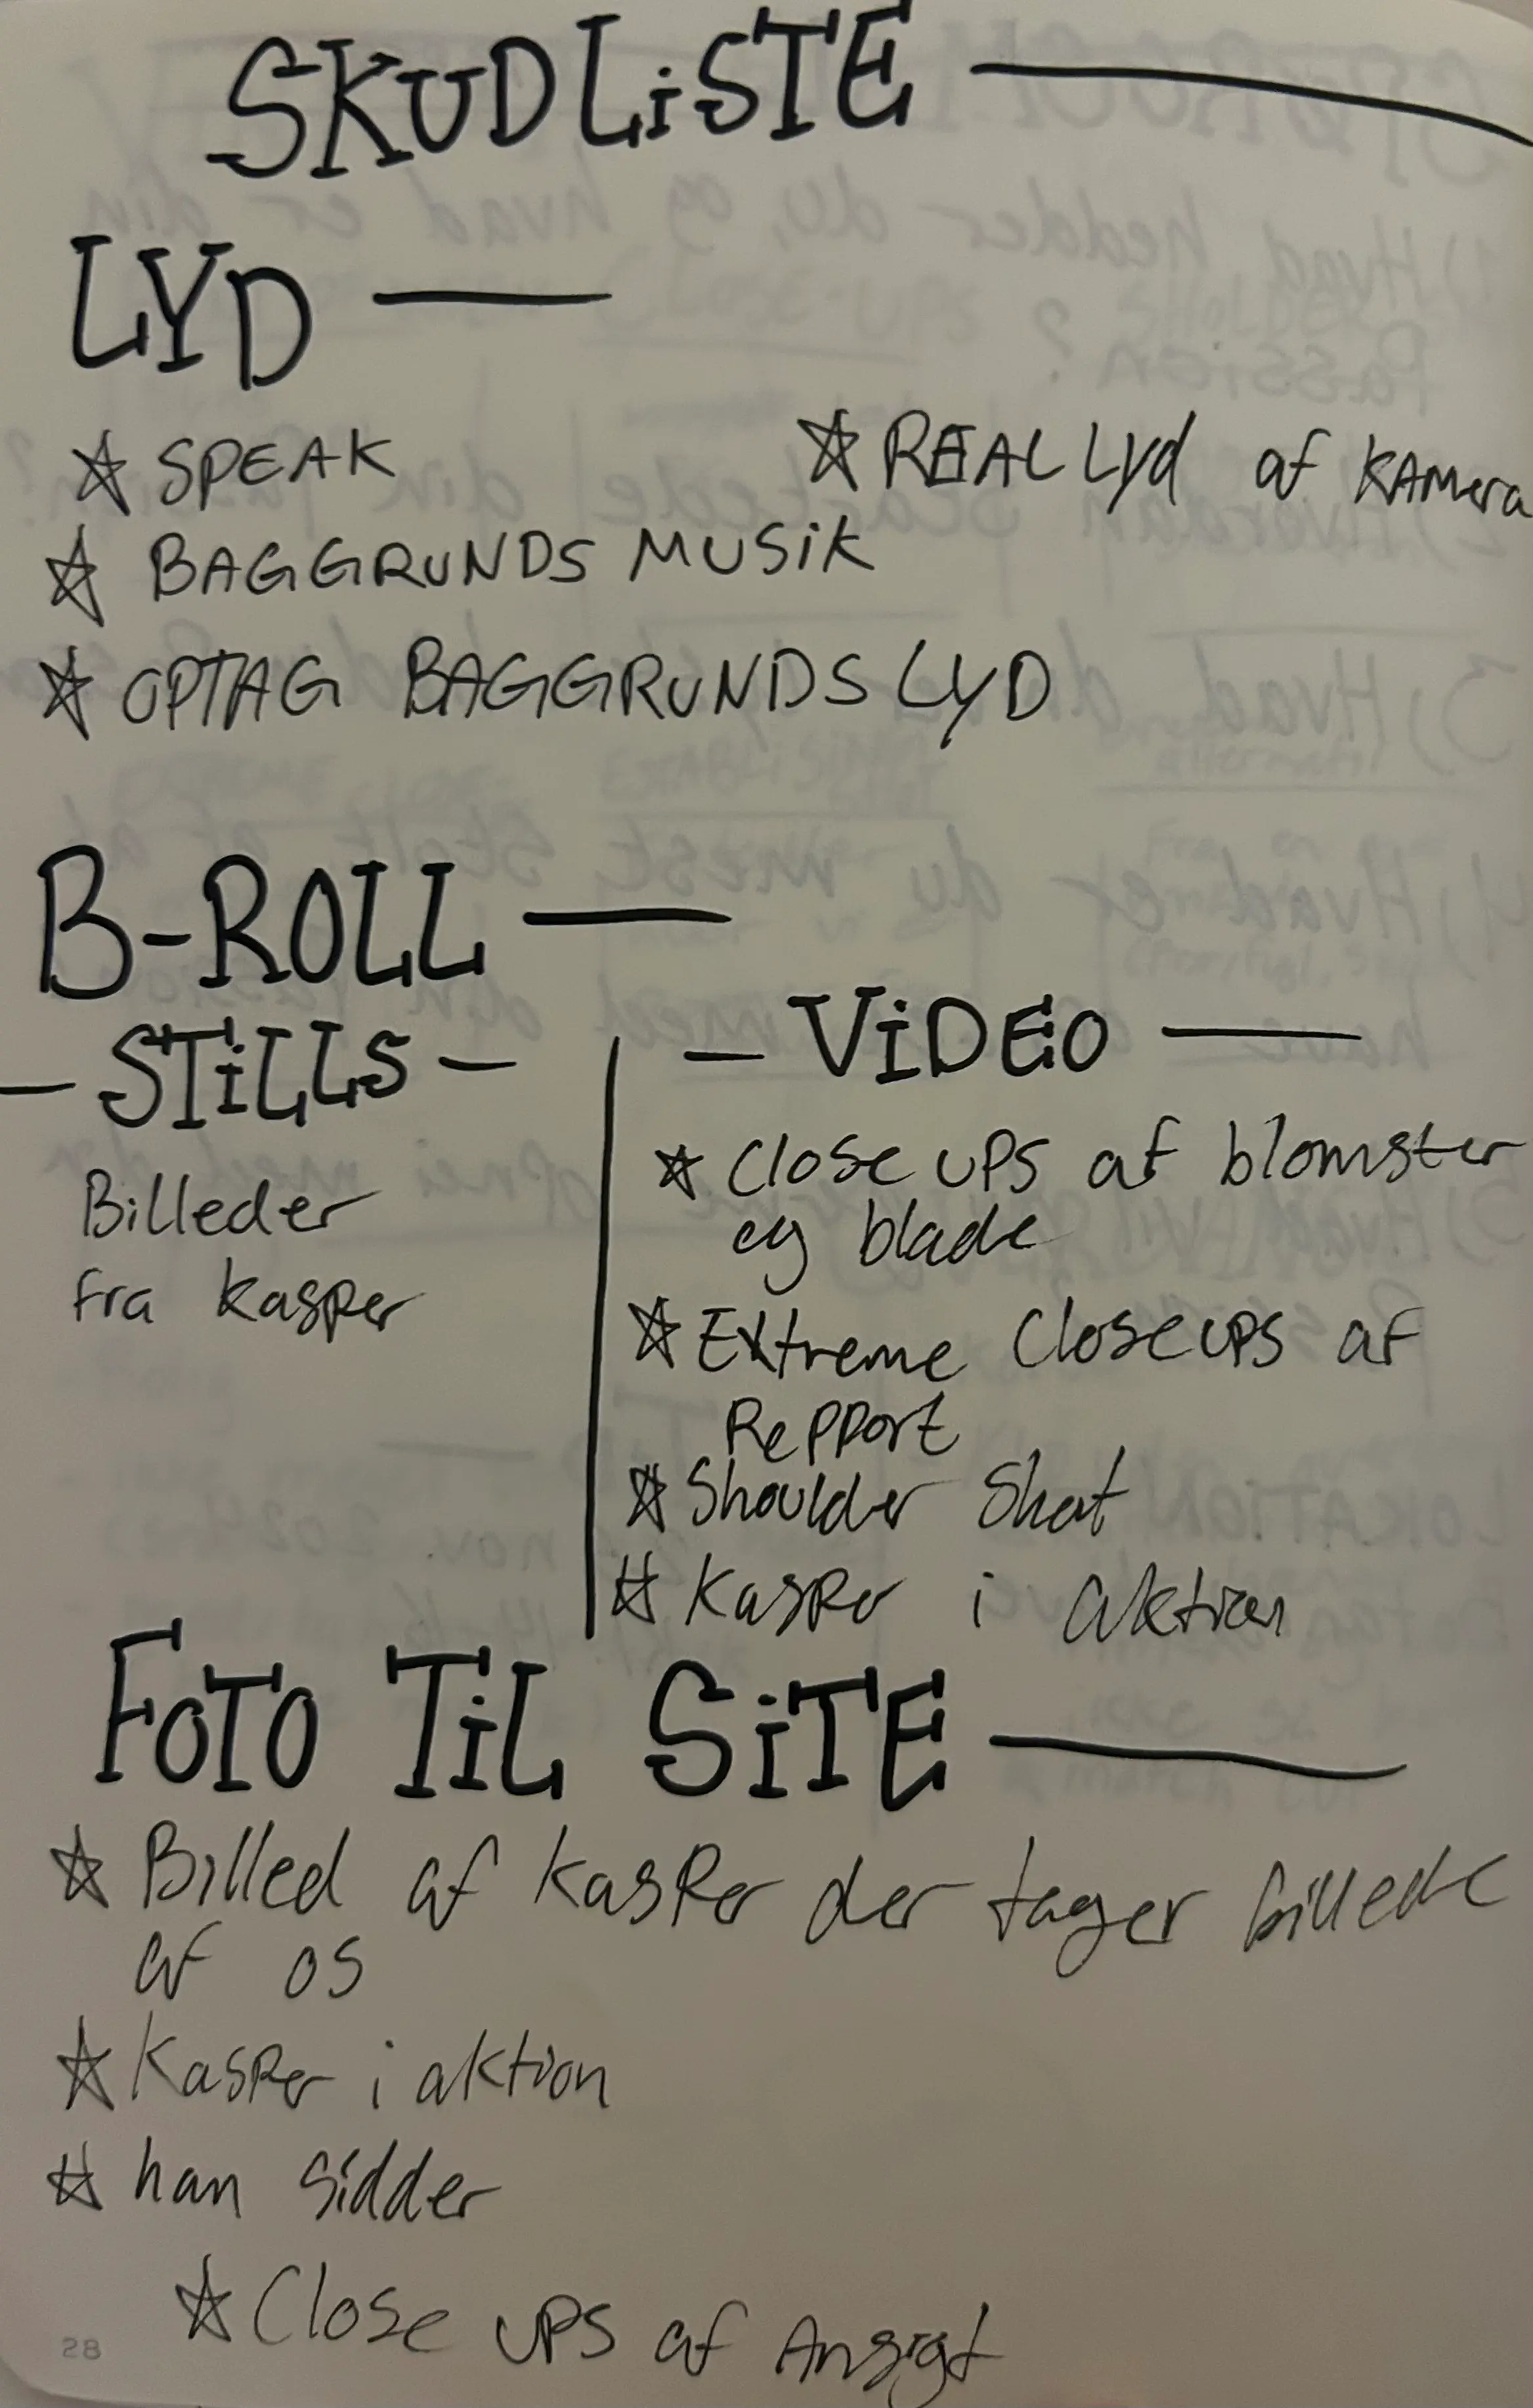 SKUDLiSTE
LYD
☆ SPEAK
☆ REAL Lyd af KAMera
☆ BAGGRUNDS MUSiK
☆ OPTAG BAGGRUNDS LYD
B-ROLL
- STiLLS -
Billeder
fra kasper
- ViDEO
☆ Close ups af blomster
og blade
☆ Extreme Closeups af
Repport
☆ Shoulder Shot
☆ Kasper i aktion
FOTO TiL SiTE
☆ Billed af kasper der tager billede
af os
☆ Kasper i aktion
☆ han Sidder
☆ Close ups af Ansigt
28